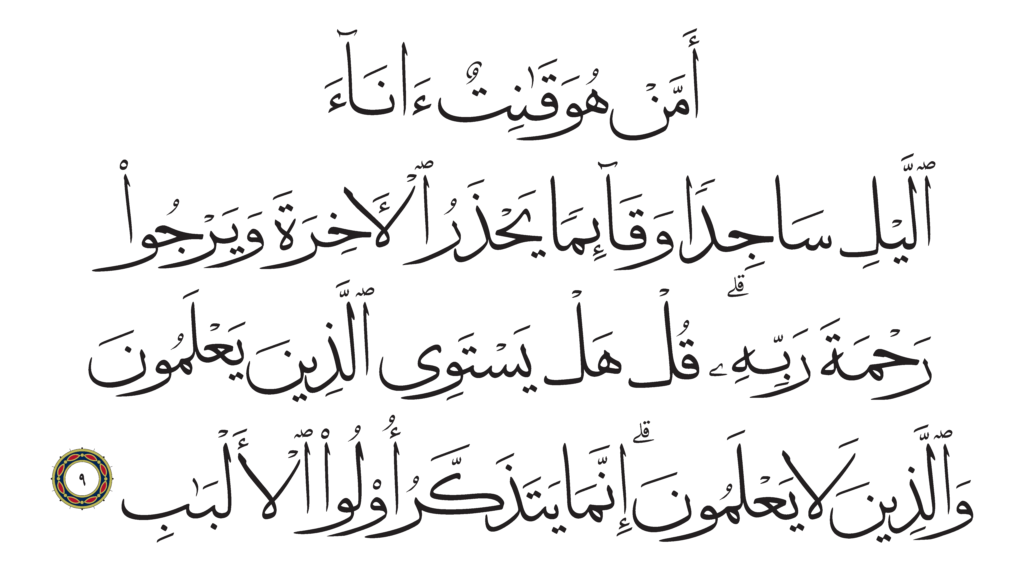 أَمَّنْ هُوَ قَـٰنِتٌ ءَانَآءَ
ٱلَّيْلِ سَاجِدًا وَقَآئِمًا يَحْذَرُ ٱلْأَخِرَةَ وَيَرْجُوا۟
رَحْمَةَ رَبِّهِۦ ۗ قُلْ هَلْ يَسْتَوِى ٱلَّذِينَ يَعْلَمُونَ
وَٱلَّذِينَ لَا يَعْلَمُونَ ۗ إِنَّمَا يَتَذَكَّرُ أُو۟لُوا۟ ٱلْأَلْبَـٰبِ ٩